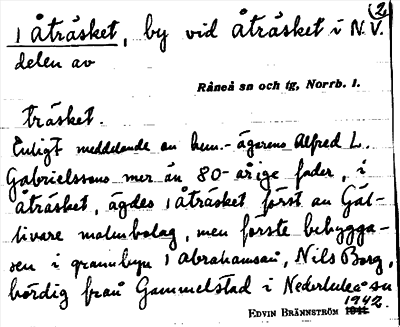 (2)
1 Åträsket, by vid Åträsket i N.V.
delen av
Råneå sn och tg, Norrb. l.
träsket.
Enligt meddelande av hem.-ägaren Alfred L.
Gabrielssons mer än 80-årige fader, i
Åträsket, ägdes 1 Åträsket först av Gäl-
livare malmbolag, men förste bebygga-
ren i grannbyn 1 Abrahamsån, Nils Borg,
bördig från Gammelstad i Nederluleå sn
1942.
EDVIN BRÄNNSTRÖM 1941.